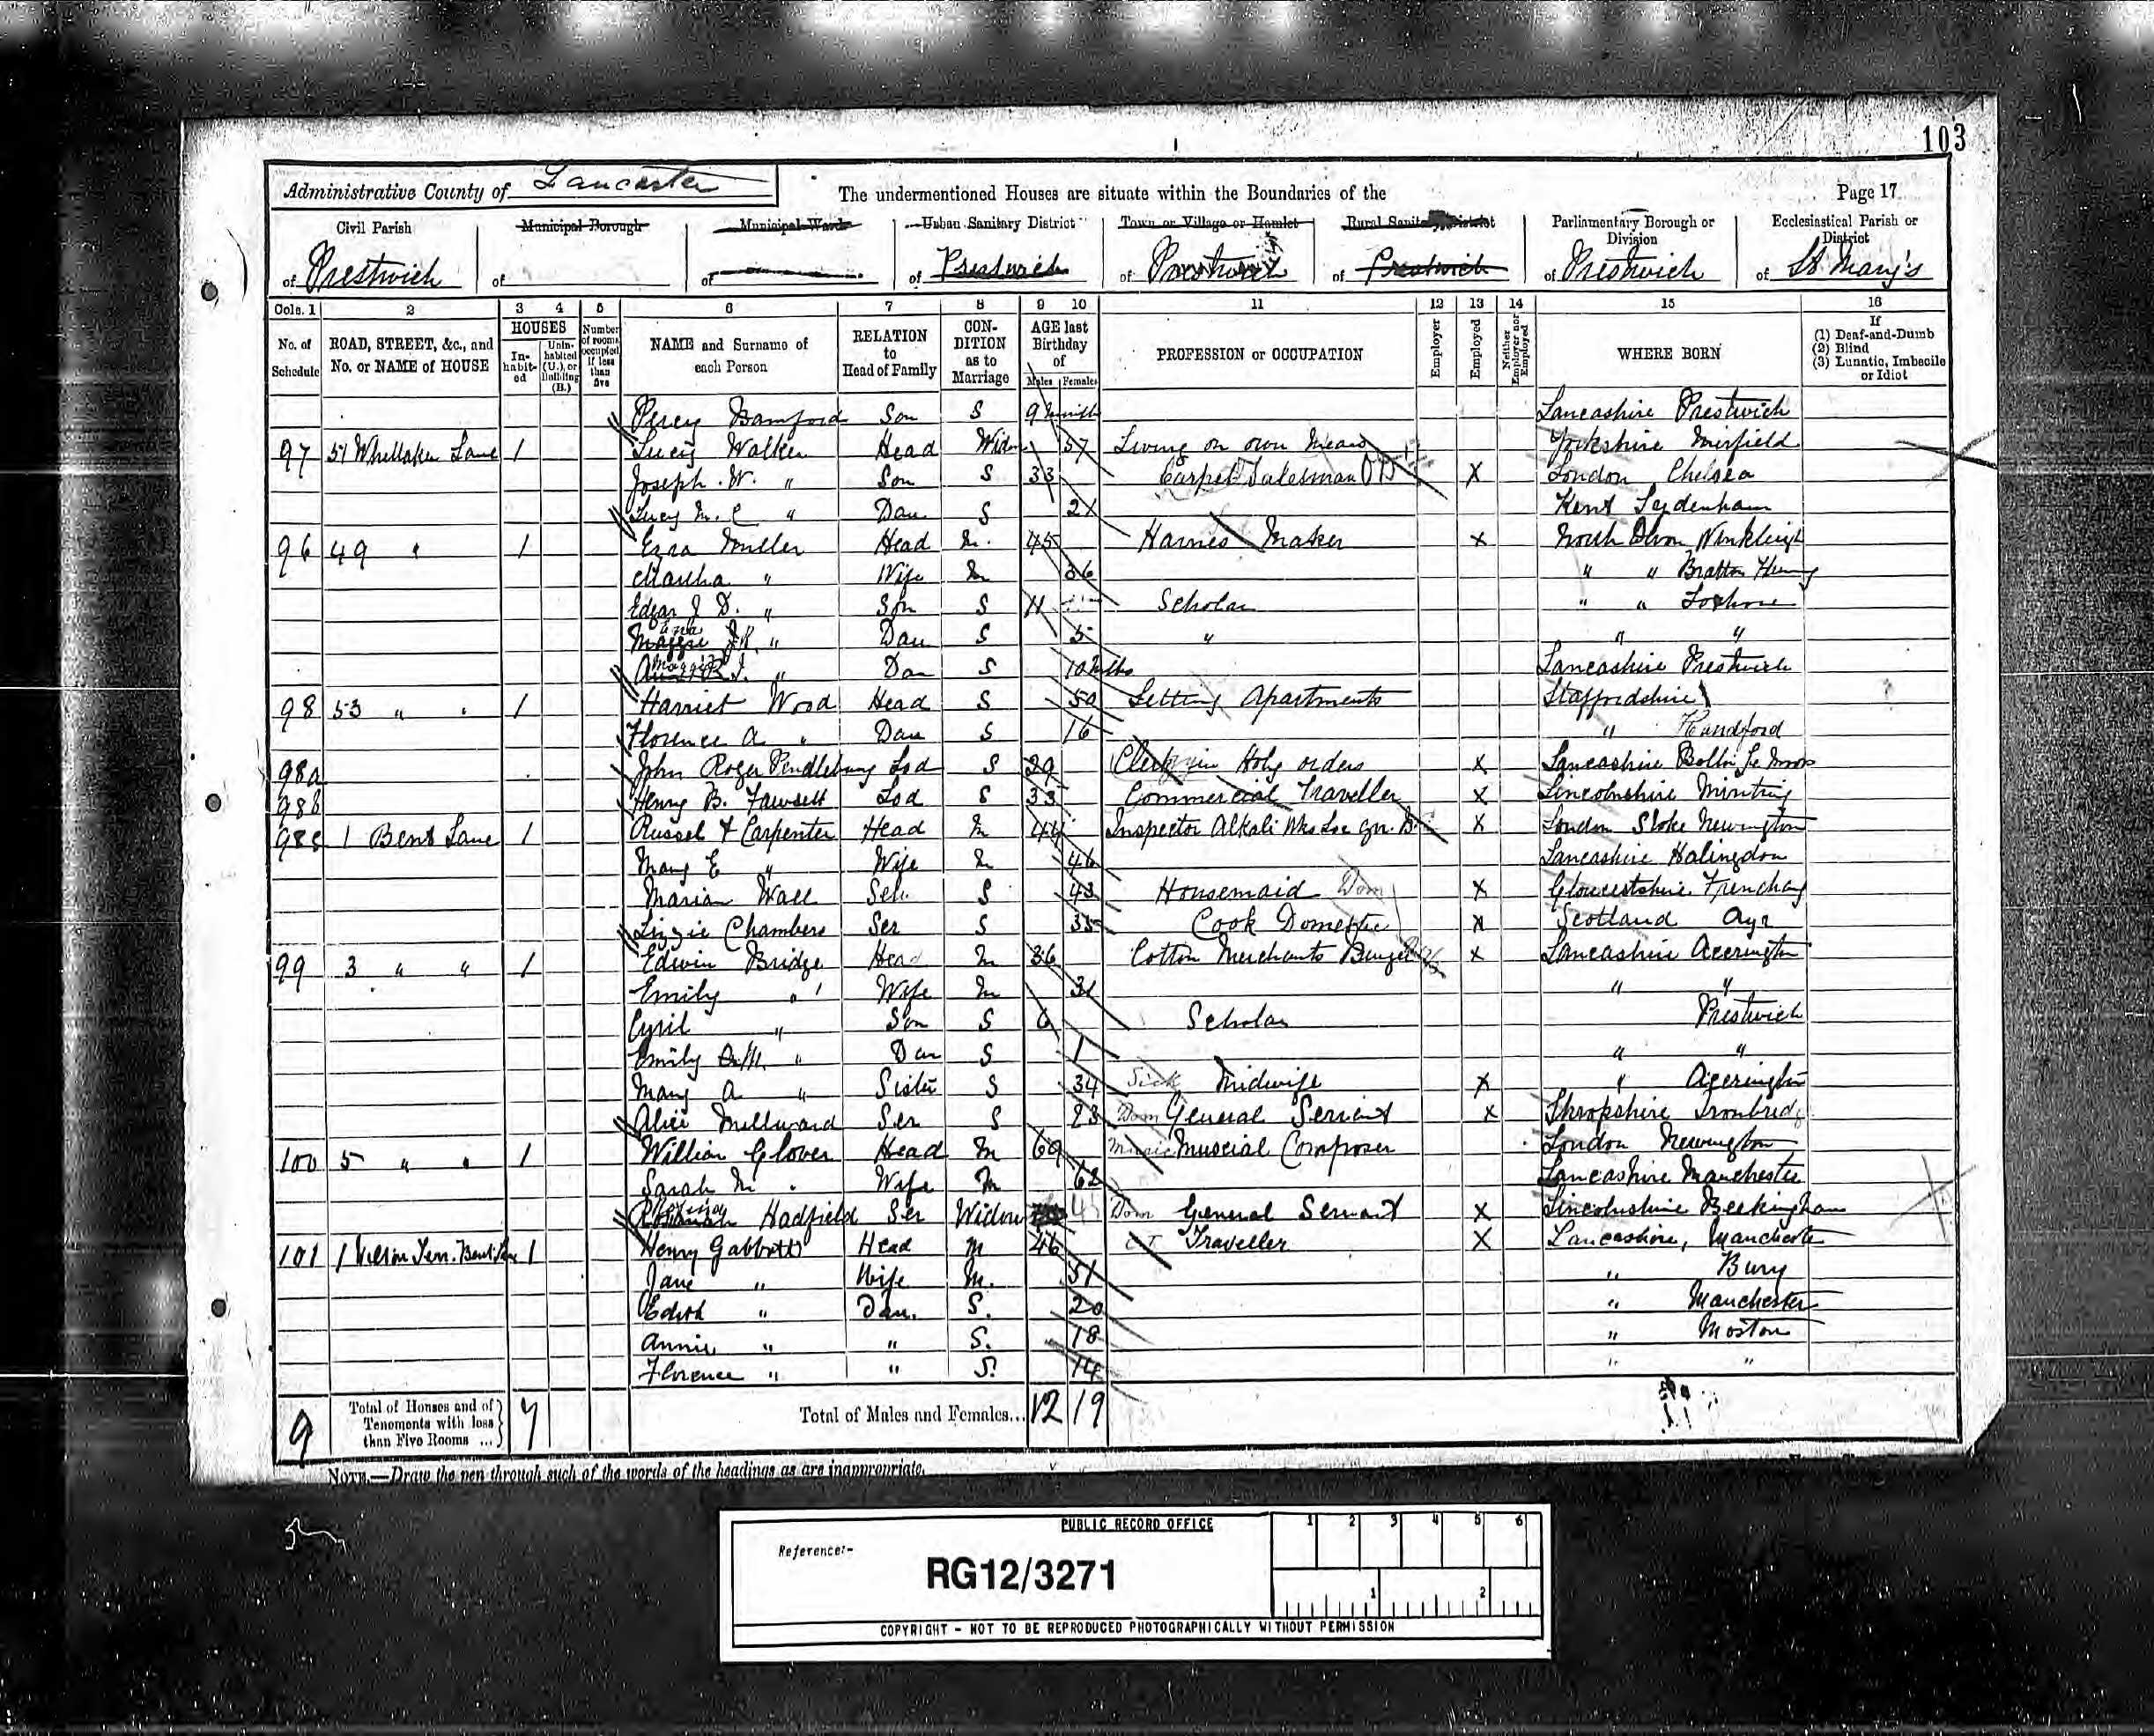 103
Administrative County of Lancaster
The undermentioned Houses are situate within the Boundaries of the
Page 17
Civil Parish of Prestwich
Municipal Borough of
Municipal Ward of
Urban Sanitary District of Prestwich
Town or Village or Hamlet of Prestwich
Rural Sanitary District of Prestwich
Parliamentary Borough or Division of Prestwich
Ecclesiastical Parish or District of St. Mary's
Cols. 1 2 3 4 5 6 7 8 9 10 11 12 13 14 15 16
No. of Schedule
ROAD, STREET, &c., and No. or NAME of HOUSE
HOUSES
Inhabited
Uninhabited (U.), or Building (B.)
Number of rooms occupied if less than five
NAME and Surname of each Person
RELATION to Head of Family
CONDITION as to Marriage
AGE last Birthday of
Males Females
PROFESSION or OCCUPATION
Employer
Employed
Neither Employer nor Employed
WHERE BORN
If
(1) Deaf-and-Dumb
(2) Blind
(3) Lunatic, Imbecile or Idiot
Percy Bamford Son S 9 months Lancashire Prestwich
97 51 Whittaker Lane 1 Lucy Walker Head Widow 57 Living on own Means Yorkshire Mirfield
Joseph W. " Son S 33 Carpet Salesman X London Chelsea
Lucy M. C " Dau S 21 Kent Sydenham
96 49 " 1 Ezra Miller Head M. 45 Harness Maker X North Devon Winkleigh
Martha " Wife M 36 " " Bratton Fleming
Edgar J D. " Son S 11 Scholar " "
Dau S 5 " " "
" Dau S 10 mths Lancashire Prestwich
98 53 " " 1 Harriet Wood Head S 50 Letting Apartments Staffordshire
Florence A " Dau S 16 "
98a John Roger Pendlebury Lod S 29 Clerk in Holy orders X Lancashire Bolton le Moors
98b Henry B. Fawsett Lod S 33 Commercial Traveller X Lincolnshire Minting
98c 1 Bent Lane 1 Russel F Carpenter Head M 44 Inspector Alkali X London Stoke Newington
Mary E " Wife M 46 Lancashire Halingdon
Marian Wall Ser S 43 Housemaid Dom X Gloucestshire Frenchay
Lizzie Chambers Ser S 35 Cook Domestic X Scotland Ayr
99 3 " " 1 Edwin Bridge Head M 36 Cotton Merchants X Lancashire Accrington
Emily " Wife M 31 " "
Cyril " Son S 6 Scholar Prestwich
Emily " Dau S 1 " "
Mary A " Sister S 34 Sick Midwife X " Accrington
Alice Millward Ser S 23 Dom General Servant X Shropshire Ironbridg
100 5 " " 1 William Glover Head M 69 Music Muscial Composer London Newington
Sarah M " Wife M 62 Lancashire Manchester
Hadfield Ser Widow Dom General Servant X Lincolnshire Beckingham
101 1 Nelson Terr. Bent Lane 1 Henry Gabbott Head M 46 CT Traveller X Lancashire, Manchester
Jane " Wife M. 51 " Bury
Edith " Dau. S. 20 " Manchester
Annie " " S. 18 " Moston
Florence " " S. 14 " "
9 Total of Houses and of Tenements with less than Five Rooms ... 7
Total of Males and Females... 12 19
NOTE.—Draw the pen through such of the words of the headings as are inappropriate.
PUBLIC RECORD OFFICE
1 2 3 4 5 6
Reference:-
RG12/3271
1 2
COPYRIGHT - NOT TO BE REPRODUCED PHOTOGRAPHICALLY WITHOUT PERMISSION